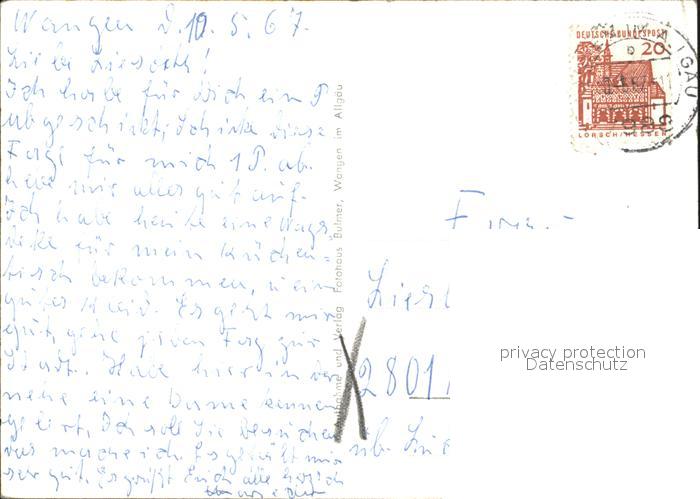 Wangen d. 10. 5. 67.
Liebe Lieselotte!
Ich habe für Dich ein P.
abgeschickt, schicke diese
Tage für mich 1 P. ab.
hebe mir alles gut auf.
Ich habe heute eine Wachs
decke für mein Küchen=
tisch bekommen, u. ein
gutes Kleid. Es geht mir
gut, gehe jeden Tag zur
Stadt. Habe hier in der
nehe eine Dame kennen
gelernt, Ich soll sie besuchen
das mache ich. Es gefällt mir
sehr gut. Es grüßt Euch alle herzlich
Aufnahme und Verlag Fotohaus Bulmer, Wangen im Allgäu
DEUTSCHE BUNDESPOST
20
LORSCH/HESSEN
Firma
Liesel
2801
privacy protection
Datenschutz